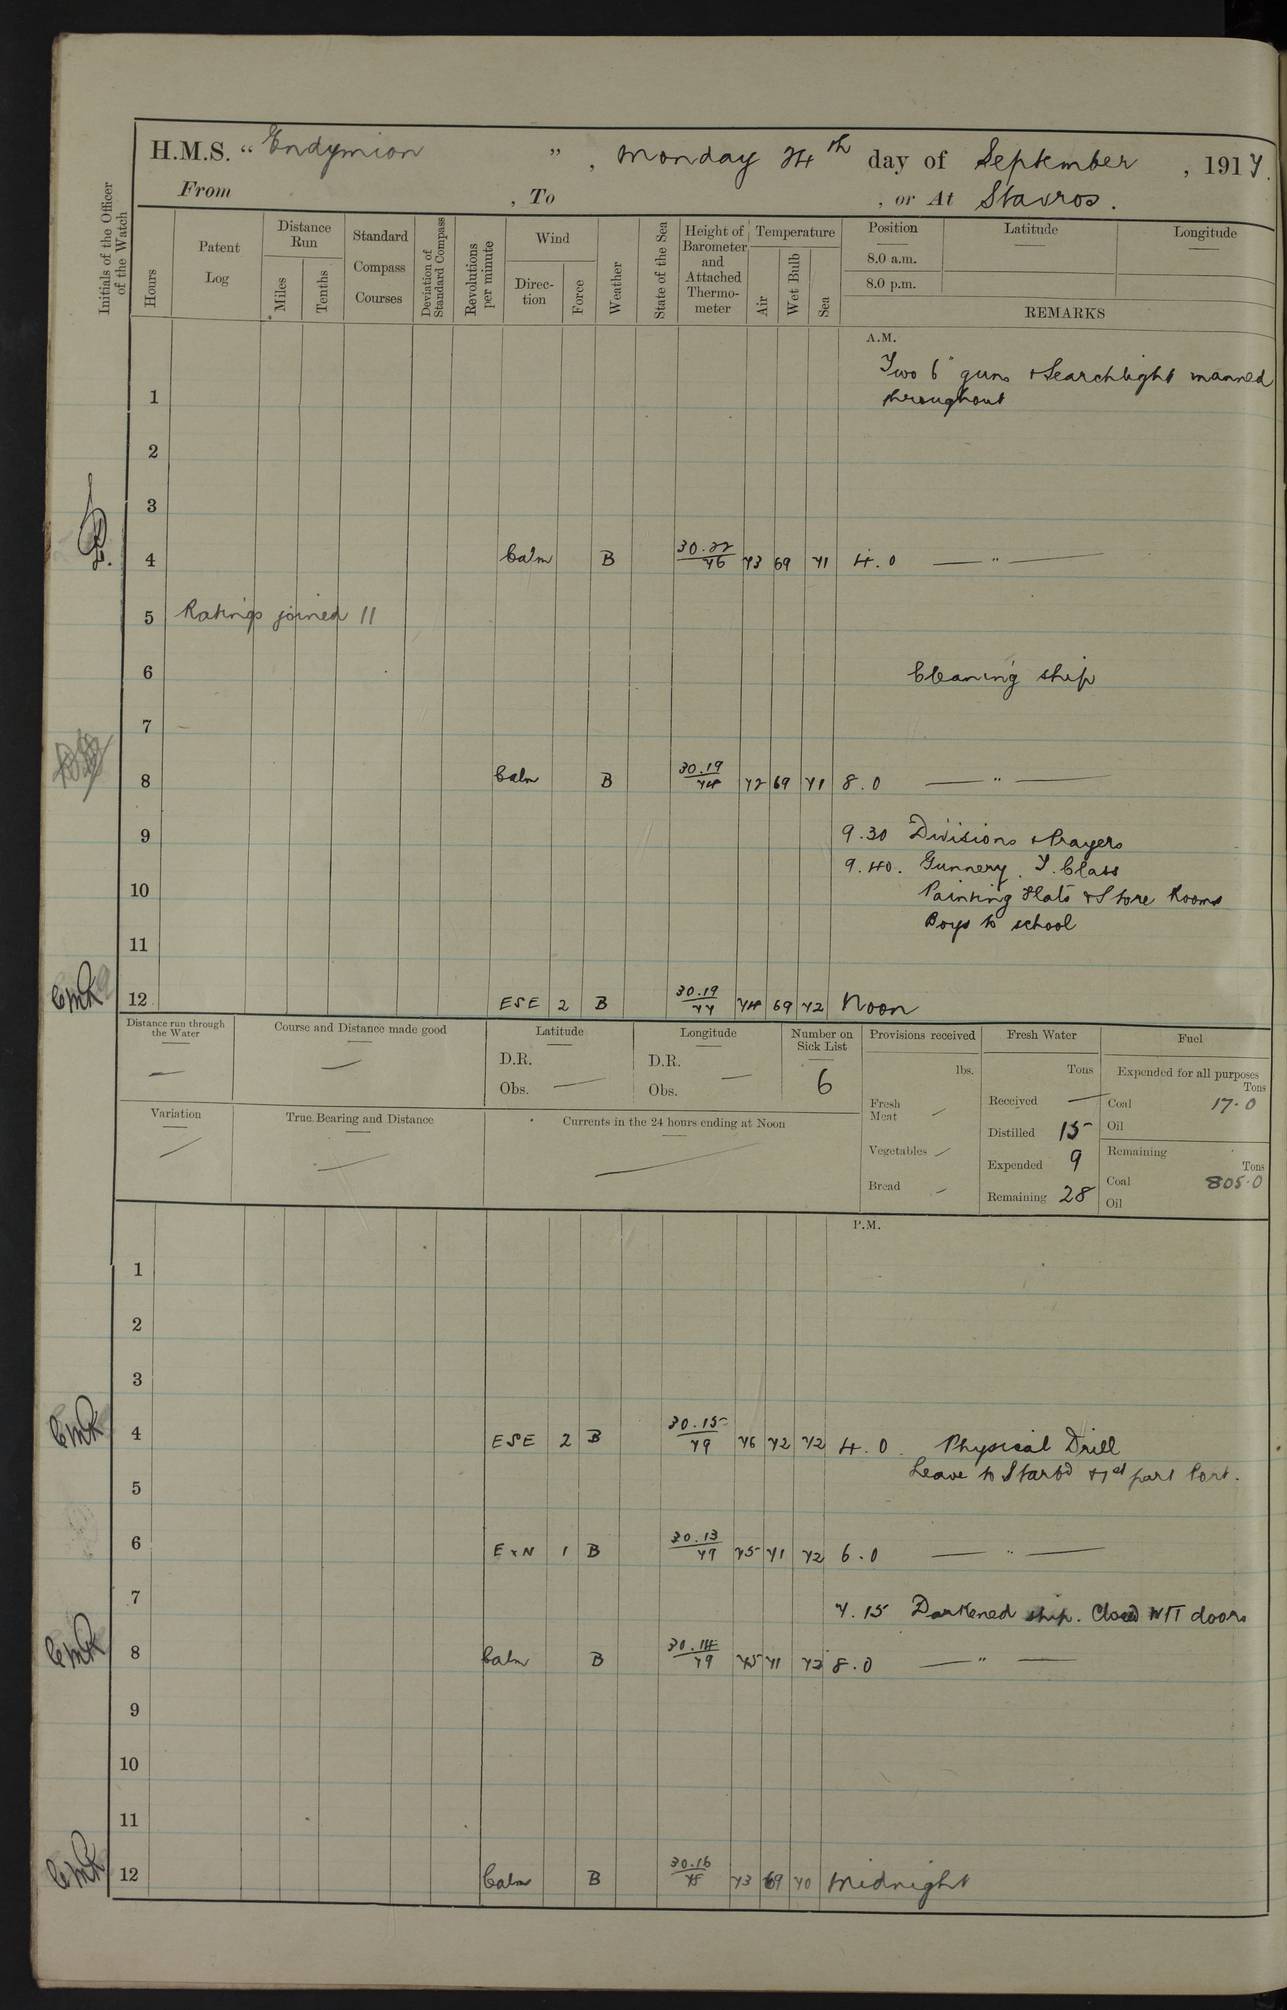 H.M.S. "Endymion", Monday 24th day of September, 1917.
From , To , or At Stavros.
Initials of the Officer of the Watch
Hours
Patent Log
Distance Run
Miles
Tenths
Standard Compass Courses
Deviation of Standard Compass
Revolutions per minute
Wind
Direction
Force
Weather
State of the Sea
Height of Barometer and Attached Thermometer
Temperature
Air
Wet Bulb
Sea
Position
8.0 a.m.
8.0 p.m.
Latitude
Longitude
REMARKS
A.M.
Two 6" guns & Searchlight manned
1 throughout
2
3
4 Calm B 30.22/76 73 69 71 4.0 — " —
5 Ratings joined 11
6 Cleaning ship
7
8 Calm B 30.19/74 72 69 71 8.0 — " —
9 9.30 Divisions & Prayers
9.40. Gunnery. T. Class
10 Painting flats & Store Rooms
Boys to school
11
CMK 12 ESE 2 B 30.19/77 74 69 72 Noon
Distance run through the Water
—
Course and Distance made good
—
Latitude
D.R.
Obs. —
Longitude
D.R.
Obs. —
Number on Sick List
6
Provisions received
lbs.
Fresh Meat —
Vegetables —
Bread —
Fresh Water
Tons
Received —
Distilled 15
Expended 9
Remaining 28
Fuel
Expended for all purposes
Tons
Coal 17.0
Oil
Remaining
Tons
Coal 805.0
Oil
Variation
—
True Bearing and Distance
—
Currents in the 24 hours ending at Noon
—
P.M.
1
2
3
CMK 4 ESE 2 B 30.15/79 76 72 72 4.0. Physical Drill
Leave to Starbd & 1st part Port.
5
6 E x N 1 B 30.13/79 75 71 72 6.0 — " —
7 7.15 Darkened ship. Closed WTT doors
CMK 8 Calm B 30.14/79 75 71 72 8.0 — " —
9
10
11
CMK 12 Calm B 30.16/78 73 69 70 Midnight